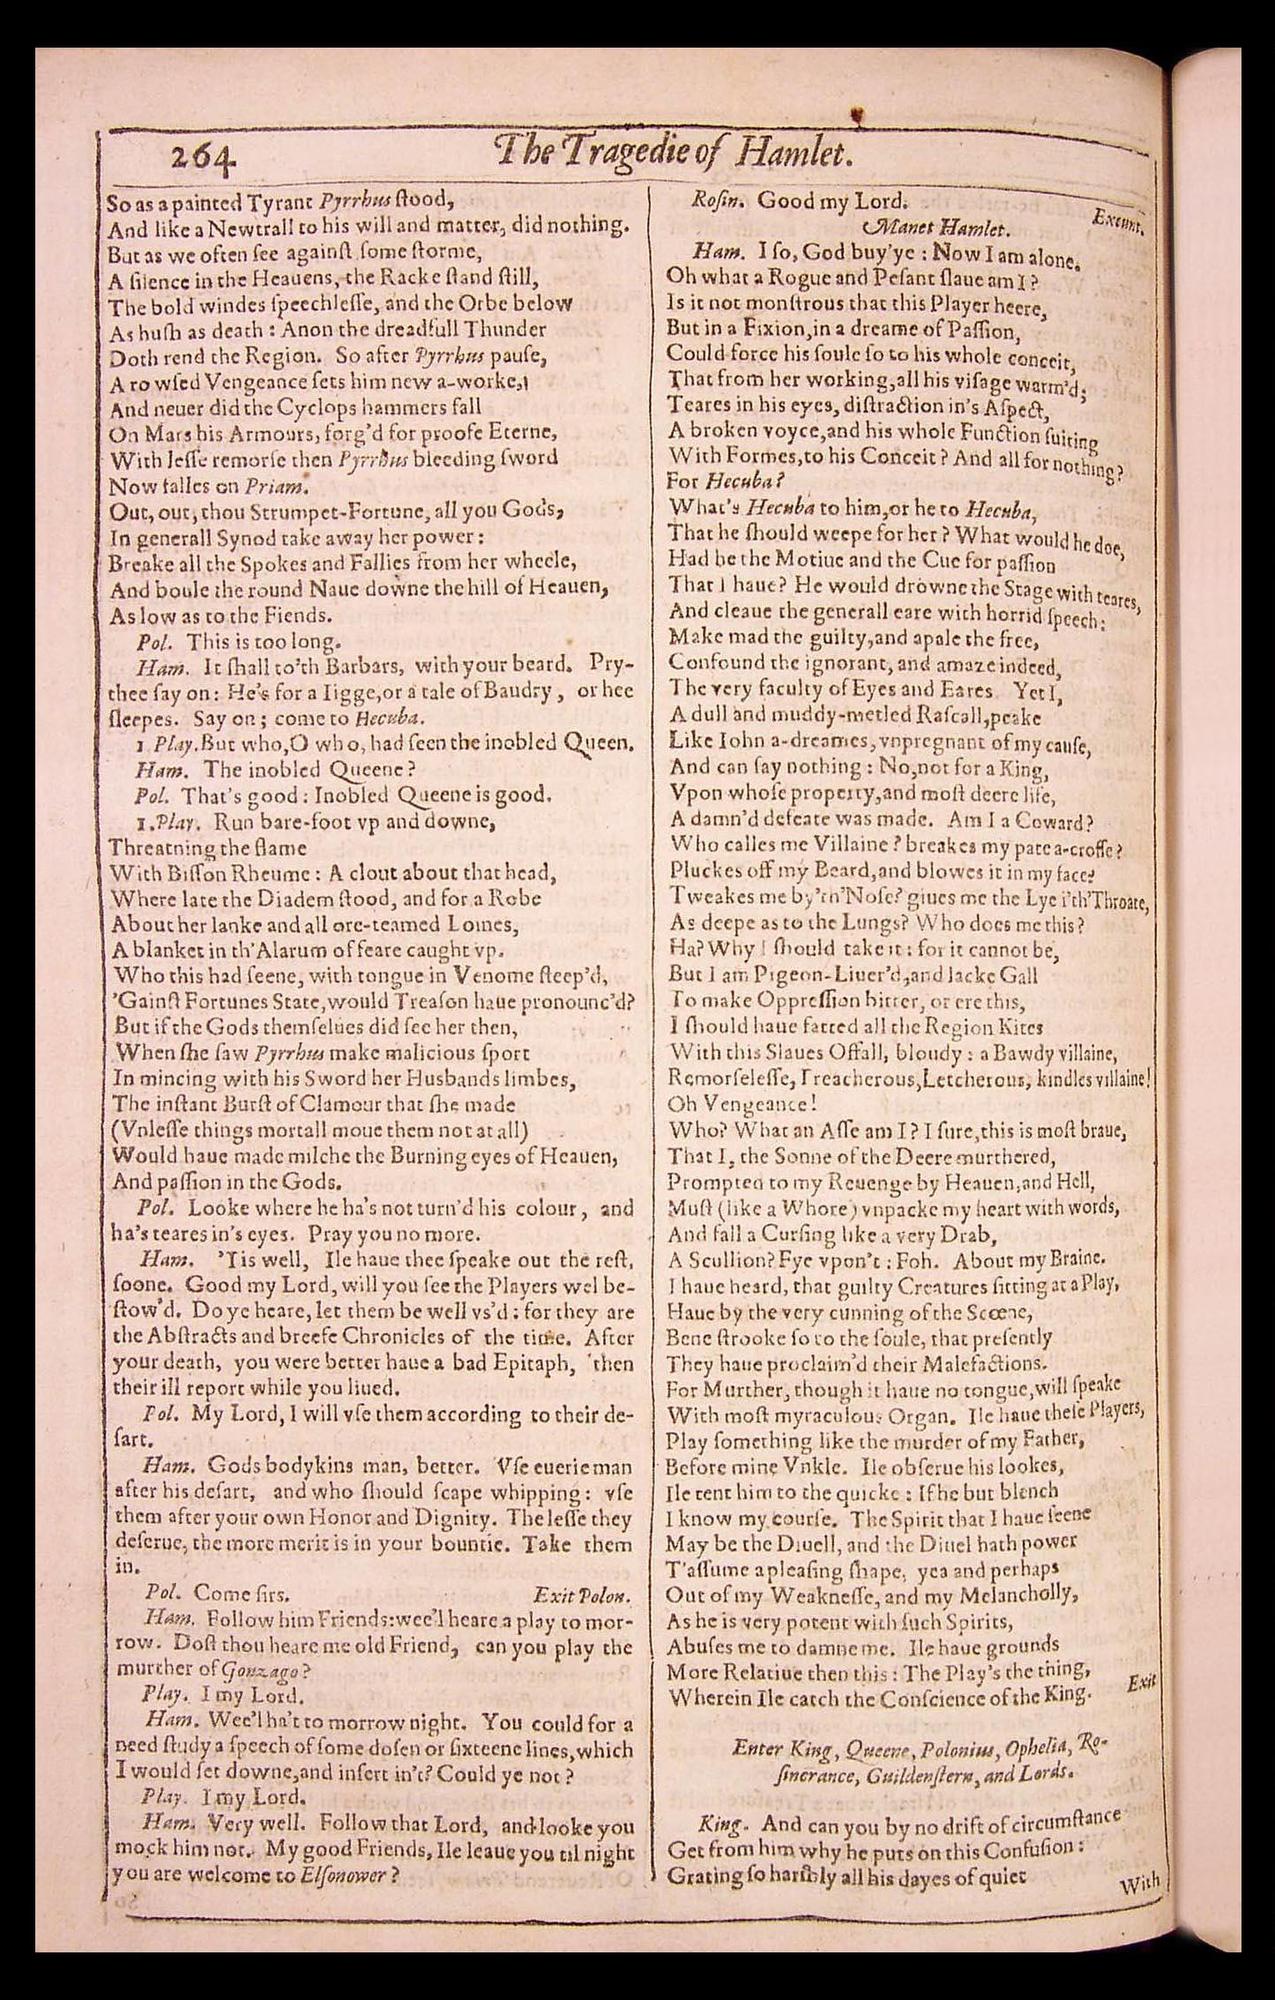 264
The Tragedie of Hamlet.
So as a painted Tyrant Pyrrhus ſtood,
And like a Newtrall to his will and matter, did nothing.
But as we often ſee againſt ſome ſtorme,
A ſilence in the Heauens, the Racke ſtand ſtill,
The bold windes ſpeechleſſe, and the Orbe below
As huſh as death : Anon the dreadfull Thunder
Doth rend the Region. So after Pyrrhus pauſe,
A ro wſed Vengeance ſets him new a-worke,
And neuer did the Cyclops hammers fall
On Mars his Armours, forg'd for proofe Eterne,
With leſſe remorſe then Pyrrhus bleeding ſword
Now falles on Priam.
Out, out, thou Strumpet-Fortune, all you Gods,
In generall Synod take away her power :
Breake all the Spokes and Fallies from her wheele,
And boule the round Naue downe the hill of Heauen,
As low as to the Fiends.
Pol. This is too long.
Ham. It ſhall to'th Barbars, with your beard. Pry-
thee ſay on : He's for a Iigge, or a tale of Baudry, or hee
ſleepes. Say on ; come to Hecuba.
1 Play. But who, O who, had ſeen the inobled Queen.
Ham. The inobled Queene ?
Pol. That's good : Inobled Queene is good.
1. Play. Run bare-foot vp and downe,
Threatning the flame
With Biſſon Rheume : A clout about that head,
Where late the Diadem ſtood, and for a Robe
About her lanke and all ore-teamed Loines,
A blanket in th'Alarum of feare caught vp.
Who this had ſeene, with tongue in Venome ſteep'd,
'Gainſt Fortunes State, would Treaſon haue pronounc'd?
But if the Gods themſelues did ſee her then,
When ſhe ſaw Pyrrhus make malicious ſport
In mincing with his Sword her Husbands limbes,
The inſtant Burſt of Clamour that ſhe made
(Vnleſſe things mortall moue them not at all)
Would haue made milche the Burning eyes of Heauen,
And paſſion in the Gods.
Pol. Looke where he ha's not turn'd his colour, and
ha's teares in's eyes. Pray you no more.
Ham. 'Tis well, Ile haue thee ſpeake out the reſt,
ſoone. Good my Lord, will you ſee the Players wel be-
ſtow'd. Do ye heare, let them be well vs'd : for they are
the Abſtracts and breefe Chronicles of the time. After
your death, you were better haue a bad Epitaph, then
their ill report while you liued.
Pol. My Lord, I will vſe them according to their de-
ſart.
Ham. Gods bodykins man, better. Vſe euerie man
after his deſart, and who ſhould ſcape whipping : vſe
them after your own Honor and Dignity. The leſſe they
deſerue, the more merit is in your bountie. Take them
in.
Pol. Come ſirs. Exit Polon.
Ham. Follow him Friends: wee'l heare a play to mor-
row. Doſt thou heare me old Friend, can you play the
murther of Gonzago ?
Play. I my Lord.
Ham. Wee'l ha't to morrow night. You could for a
need ſtudy a ſpeech of ſome doſen or ſixteene lines, which
I would ſet downe, and inſert in't? Could ye not ?
Play. I my Lord.
Ham. Very well. Follow that Lord, and looke you
mock him not. My good Friends, Ile leaue you til night
you are welcome to Elſonower ?
Roſin. Good my Lord. Exeunt.
Manet Hamlet.
Ham. I ſo, God buy'ye : Now I am alone.
Oh what a Rogue and Peſant ſlaue am I ?
Is it not monſtrous that this Player heere,
But in a Fixion, in a dreame of Paſſion,
Could force his ſoule ſo to his whole conceit,
That from her working, all his viſage warm'd;
Teares in his eyes, diſtraction in's Aſpect,
A broken voyce, and his whole Function ſuiting
With Formes, to his Conceit ? And all for nothing?
For Hecuba ?
What's Hecuba to him, or he to Hecuba,
That he ſhould weepe for her ? What would he doe,
Had he the Motiue and the Cue for paſſion
That I haue? He would drowne the Stage with teares,
And cleaue the generall eare with horrid ſpeech:
Make mad the guilty, and apale the free,
Confound the ignorant, and amaze indeed,
The very faculty of Eyes and Eares. Yet I,
A dull and muddy-metled Raſcall, peake
Like Iohn a-dreames, vnpregnant of my cauſe,
And can ſay nothing : No, not for a King,
Vpon whoſe property, and moſt deere life,
A damn'd defeate was made. Am I a Coward ?
Who calles me Villaine ? breakes my pate a-croſſe ?
Pluckes off my Beard, and blowes it in my face?
Tweakes me by'th'Noſe? giues me the Lye i'th'Throate,
As deepe as to the Lungs? Who does me this ?
Ha? Why I ſhould take it : for it cannot be,
But I am Pigeon-Liuer'd, and lacke Gall
To make Oppreſſion bitter, or ere this,
I ſhould haue fatted all the Region Kites
With this Slaues Offall, bloudy : a Bawdy villaine,
Remorſeleſſe, Treacherous, Letcherous, kindles villaine!
Oh Vengeance !
Who? What an Aſſe am I ? I ſure, this is moſt braue,
That I, the Sonne of the Deere murthered,
Prompted to my Reuenge by Heauen, and Hell,
Muſt (like a Whore) vnpacke my heart with words,
And fall a Curſing like a very Drab,
A Scullion? Fye vpon't : Foh. About my Braine.
I haue heard, that guilty Creatures ſitting at a Play,
Haue by the very cunning of the Scœne,
Bene ſtrooke ſo to the ſoule, that preſently
They haue proclaim'd their Malefactions.
For Murther, though it haue no tongue, will ſpeake
With moſt myraculous Organ. Ile haue theſe Players,
Play ſomething like the murder of my Father,
Before mine Vnkle. Ile obſerue his lookes,
Ile tent him to the quicke : If he but blench
I know my courſe. The Spirit that I haue ſeene
May be the Diuell, and the Diuel hath power
T'aſſume a pleaſing ſhape, yea and perhaps
Out of my Weakneſſe, and my Melancholly,
As he is very potent with ſuch Spirits,
Abuſes me to damne me. Ile haue grounds
More Relatiue then this : The Play's the thing,
Wherein Ile catch the Conſcience of the King. Exit
Enter King, Queene, Polonius, Ophelia, Ro-
ſincrance, Guildenſtern, and Lords.
King. And can you by no drift of circumſtance
Get from him why he puts on this Confuſion :
Grating ſo harſhly all his dayes of quiet
With